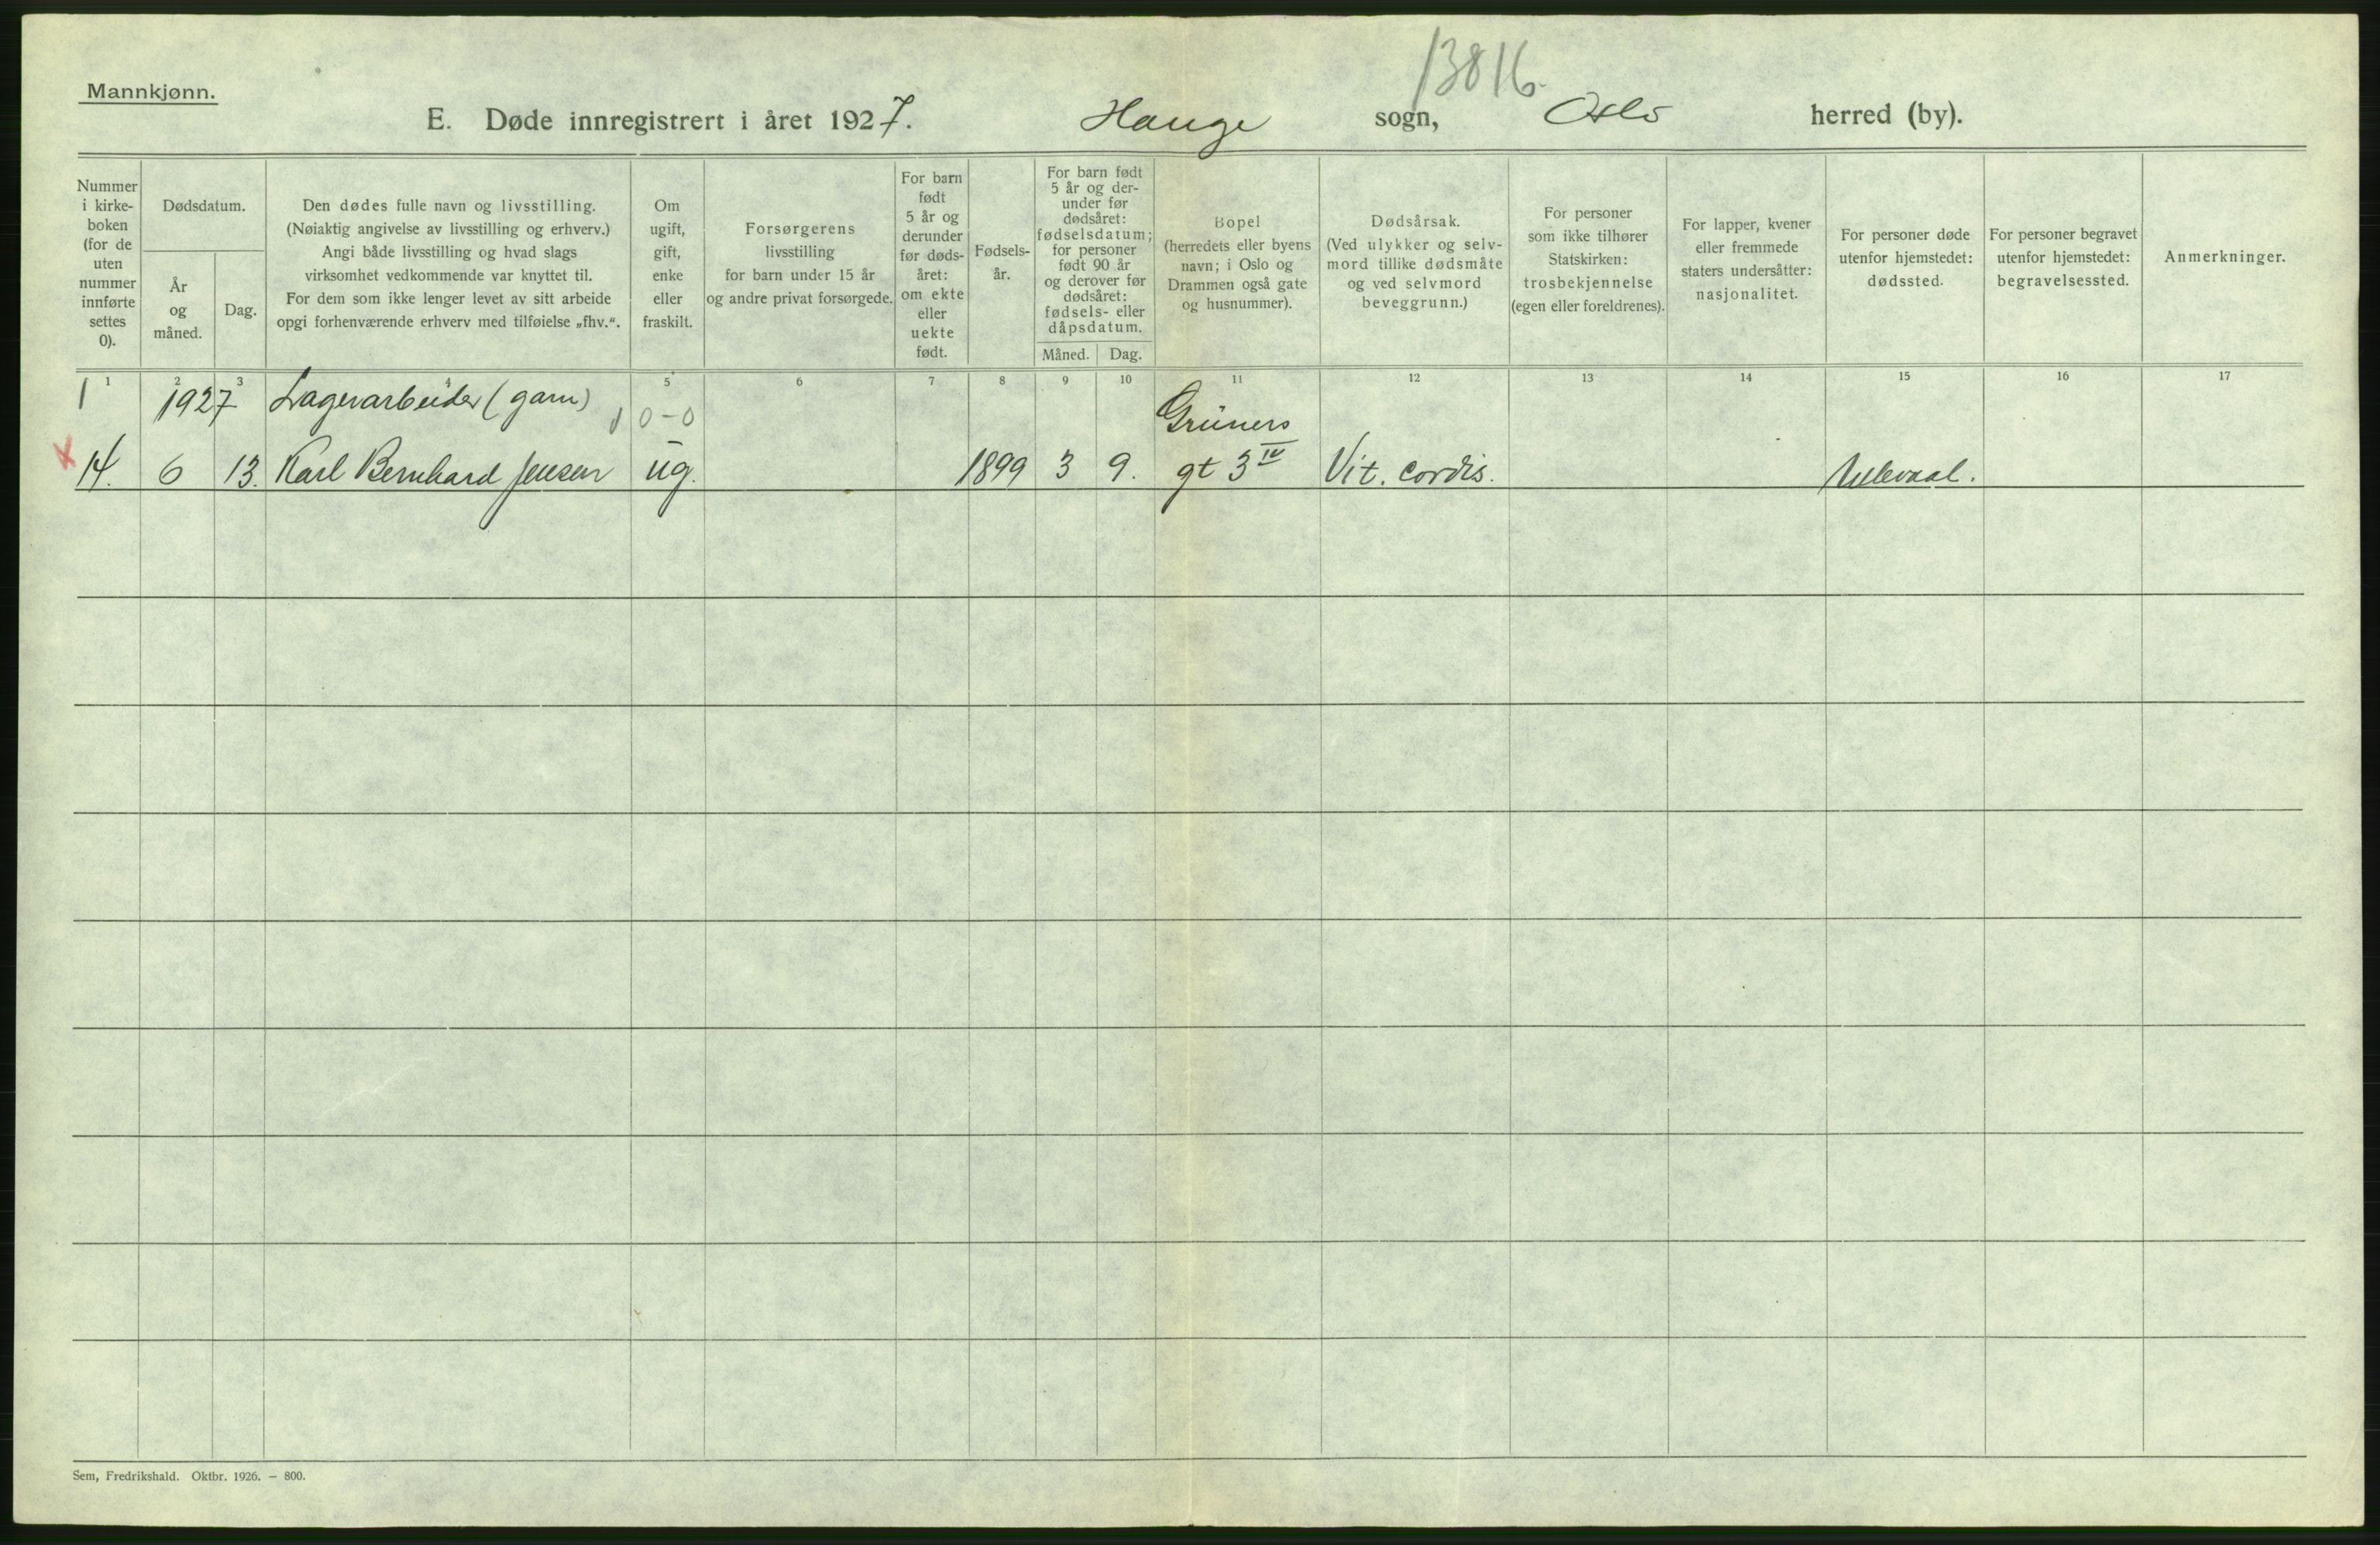 13816.
Mannkjønn.
E. Døde innregistrert i året 1927. Hauge sogn, Oslo herred (by).
Nummer i kirke-boken (for de uten nummer innførte settes 0).
Dødsdatum.
År og måned.
Dag.
Den dødes fulle navn og livsstilling.
(Nøiaktig angivelse av livsstilling og erhverv.)
Angi både livsstilling og hvad slags
virksomhet vedkommende var knyttet til.
For dem som ikke lenger levet av sitt arbeide
opgi forhenværende erhverv med tilføielse „fhv.“.
Om ugift, gift, enke eller fraskilt.
Forsørgerens
livsstilling
for barn under 15 år
og andre privat forsørgede.
For barn født 5 år og derunder før døds-året: om ekte eller uekte født.
Fødsels-år.
For barn født 5 år og der-under før dødsåret: fødselsdatum; for personer født 90 år og derover før dødsåret: fødsels- eller dåpsdatum.
Måned. Dag.
Bopel
(herredets eller byens
navn; i Oslo og
Drammen også gate
og husnummer).
Dødsårsak.
(Ved ulykker og selv-
mord tillike dødsmåte
og ved selvmord
beveggrunn.)
For personer
som ikke tilhører
Statskirken:
trosbekjennelse
(egen eller foreldrenes).
For lapper, kvener
eller fremmede
staters undersåtter:
nasjonalitet.
For personer døde
utenfor hjemstedet:
dødssted.
For personer begravet
utenfor hjemstedet:
begravelsessted.
Anmerkninger.
1 2 3 4 5 6 7 8 9 10 11 12 13 14 15 16 17
1 1927 Lagerarbeider (garn) 0-0 Grüners
14. 6 13. Karl Bernhard Jensen ug. 1899 3 9. gt 3 IV Vit. cordis. Ullevaal.
Sem, Fredrikshald. Oktbr. 1926. — 800.